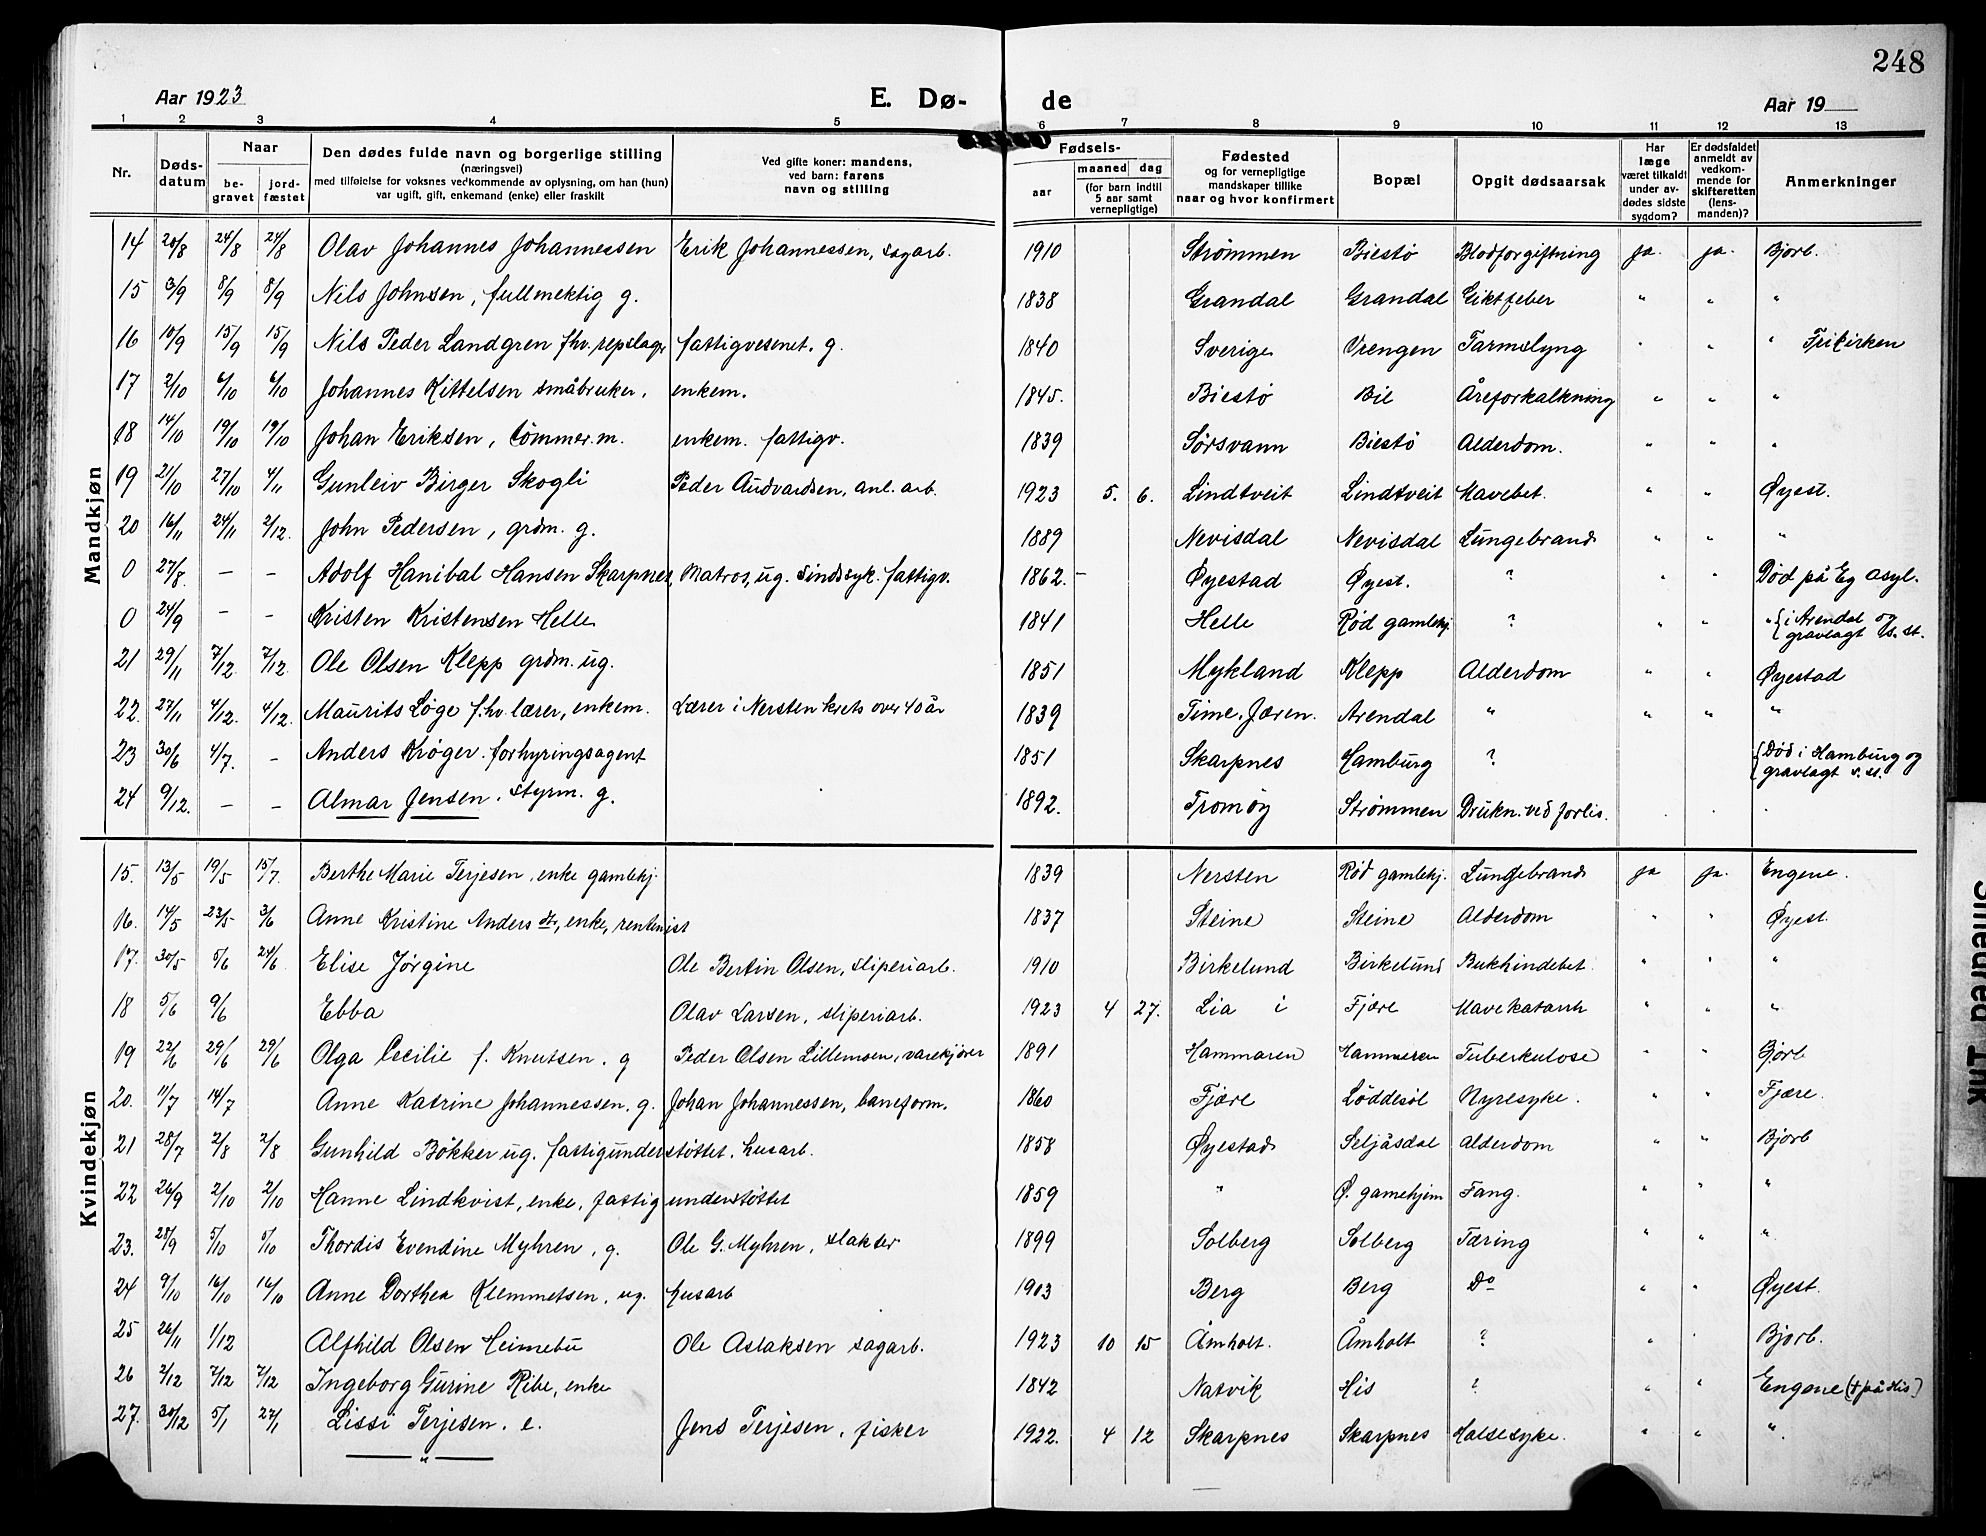 248
Aar 1923 E. Dø- de Aar 19
1 2 3 4 5 6 7 8 9 10 11 12 13
Nr. Døds-datum Naar be-gravet jord-fæstet Den dødes fulde navn og borgerlige stilling (næringsvei) med tilføielse for voksnes vedkommende av oplysning, om han (hun) var ugift, gift, enkemand (enke) eller fraskilt Ved gifte koner: mandens, ved barn: farens navn og stilling Fødsels- aar maaned dag (for barn indtil 5 aar samt vernepligtige) Fødested og for vernepligtige mandskaper tillike naar og hvor konfirmert Bopæl Opgit dødsaarsak Har læge været tilkaldt under av-dødes sidste sygdom? Er dødsfaldet anmeldt av vedkom-mende for skifteretten (lens-manden)? Anmerkninger
Mandkjøn
14 20/8 24/8 24/8 Olav Johannes Johannessen Erik Johannessen, sagarb. 1910 Strømmen Biestø Blodforgiftning ja. ja. Bjorb.
15 3/9 8/9 8/9 Nils Johnsen, fullmektig g. 1838 Grandal Grandal Giktfeber " " "
16 10/9 15/9 15/9 Nils Peder Landgren fhv. repslager fattigvesenet. g. 1840 Sverige Vrengen Tarmslyng " " " Frikirken
17 2/10 6/10 6/10 Johannes Kittelsen småbruker, enkem. 1845. Biestø Bie Åreforkalkning " " "
18 14/10 19/10 19/10 Johan Eriksen, tømmer.m. enkem. fattigv. 1839 Sørsvann Biestø Alderdom. " " "
19 21/10 27/10 4/11 Gunleiv Birger Skogli Peder Audvardsen, anl. arb. 1923 5. 6. Lindtveit Lindtveit Mavebet. " " Øyest.
20 16/11 24/11 2/12. John Pedersen, grdm. g. 1889 Nevisdal Nevisdal Lungebrand " " "
0 27/8. - - Adolf Hanibal Hansen Skarpnes, Matros, ug. Sindssyk. fattigv. 1862. - Øyestad Øyest. ? " " Død på Eg asyl.
0 24/9 - - Kristen Kristensen Helle 1841 Helle Rød gamlehj. ? " " " { i Arendal og gravlagt s. st.
21 29/11 7/12 7/12. Ole Olsen Klepp grdm. ug. 1851 Mykland Klepp Alderdom " " Øyestad
22. 27/11 4/12. 4/12. Maurits Løge f.hv. lærer, enkem. Lærer i Nersten krets over 40 år 1839 Time. Jæren. Arendal " " " "
23 30/6 4/7. - Anders Krøger. forhyringsagent 1851 Skarpnes Hamburg ? { Død i Hamburg og gravlagt s. st.
24 9/12. - - Almar Jensen. styrm. g. 1892. Tromøy Strømmen Drukn. ved forlis.
Kvindekjøn
15. 13/5 19/5 15/7. Berthe Marie Terjesen, enke gamlehj. 1839 Nersten Rød gamlehj. Lungebrand ja ja. Engene.
16. 14/5 23/5 3/6 Anne Kristine Anders dtr, enke, rentenist 1837 Steine Steine Alderdom " " Øyest.
17. 30/5 5/6 24/6 Elise Jørgine Ole Bertin Olsen, sliperiarb. 1910 Birkelund Birkelund Bukhindebet. " " "
18 5/6 9/6 Ebba Olav Larsen, sliperiarb. 1923 4 27. Lia i Fjære Mavekatarrh " " "
19 22/6 29/6 29/6 Olga Cecilie f. Knutsen. g Peder Olsen Lillemsen, varekjører 1891 Hammaren Hammeren Tuberkulose " " Bjorb
20. 11/7 14/7 Anne Katrine Johannessen. g. Johan Johannessen, baneform. 1860 Fjære Løddesøl Nyresyke. " " Fjære.
21 28/7 2/8 2/8 Gunhild Bøkker ug. fattigunderstøttet. husarb. 1858 Øyestad Seljåsdal Alderdom " " Bjorb
22 26/9 2/10 2/10 Hanne Lindkvist, enke, fattig understøttet 1859 " Ø. gamehjem Fang. " " "
23. 28/9 5/10 5/10 Thordis Evendine Myhren, g. Ole G. Myhren, slakter 1899 Solberg Solberg Tæring " " "
24 9/10 16/10 16/10 Anne Dorthea Klemmetsen, ug. husarb 1903 Berg Berg Do " " Øyest.
25 26/11 1/12 Alfhild Olsen Heimebu Ole Aslaksen sagarb. 1923 10 15 Åmholt. Åmholt ? " " Bjorb.
26 2/12 7/12 7/12 Ingeborg Gurine Ribe, enke 1842 Natvik His ? " " Engene († på His)
27. 30/12 5/1 27/1 Lissi Terjesen. e. Jens Terjesen, fisker 1922. 4 12 Skarpnes Skarpnes Halsesyke. " " "